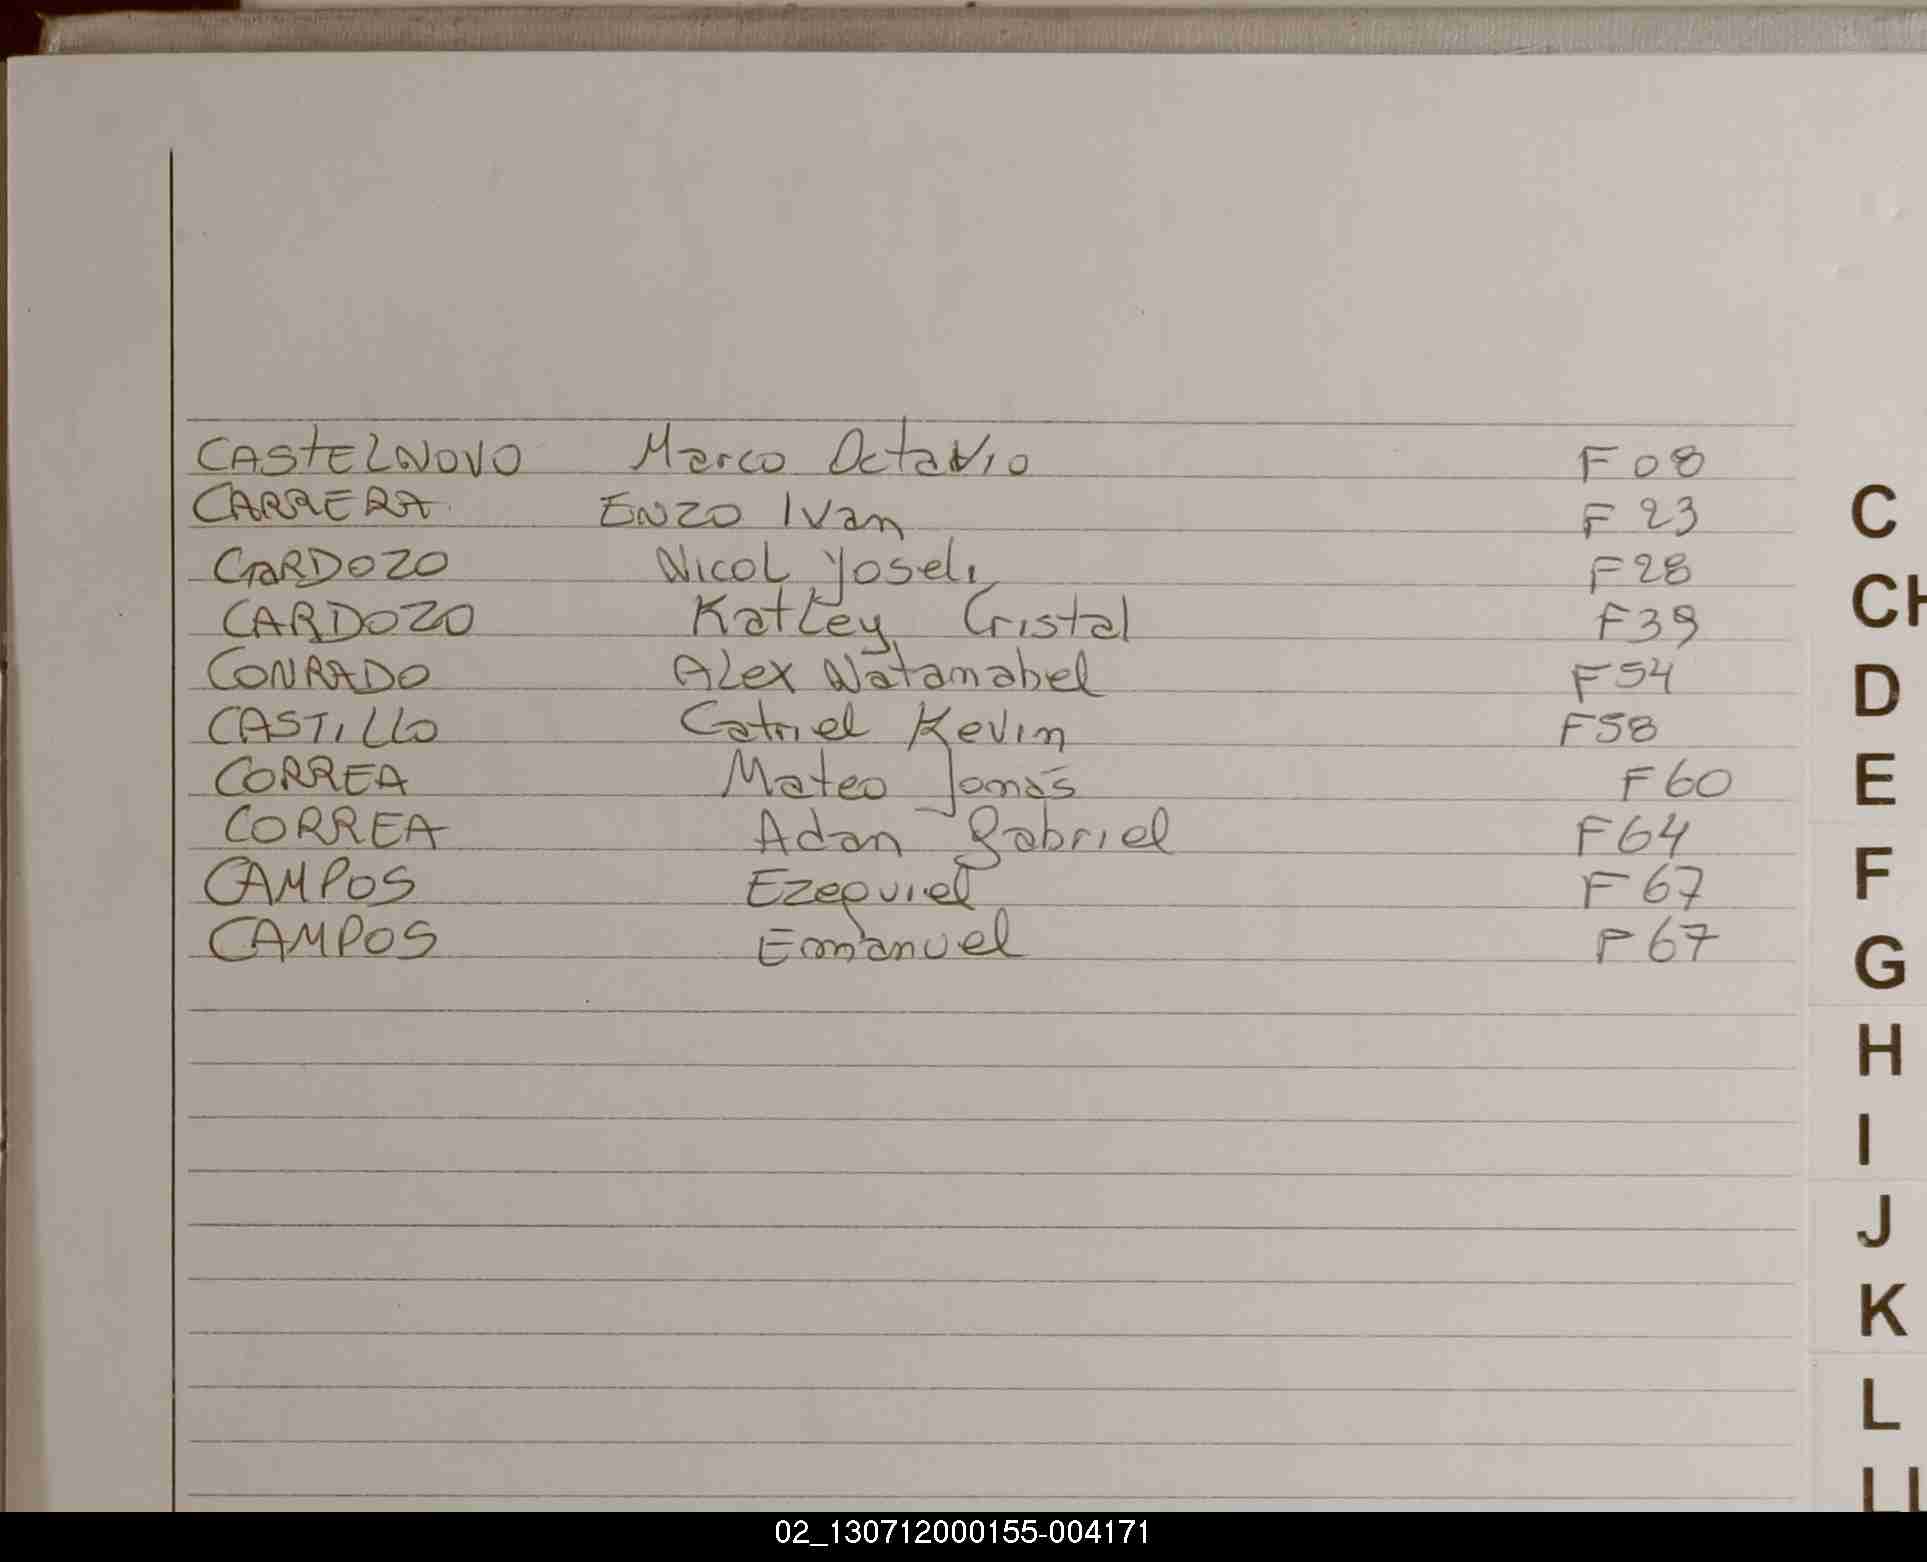 CASTELNOVO Marco Octavio F 08
CARRERA ENZO Ivan F 23
CARDOZO Nicol Yoseli F28
CARDOZO Katley Cristal F39
CONRADO Alex Natanahel F54
CASTILLO Catriel Kevin F58
CORREA Mateo Tomás F60
CORREA Adan Gabriel F64
CAMPOS Ezequiel F 67
CAMPOS Emmanuel F 67
C
CH
D
E
F
G
H
I
J
K
L
LL
02_130712000155-004171